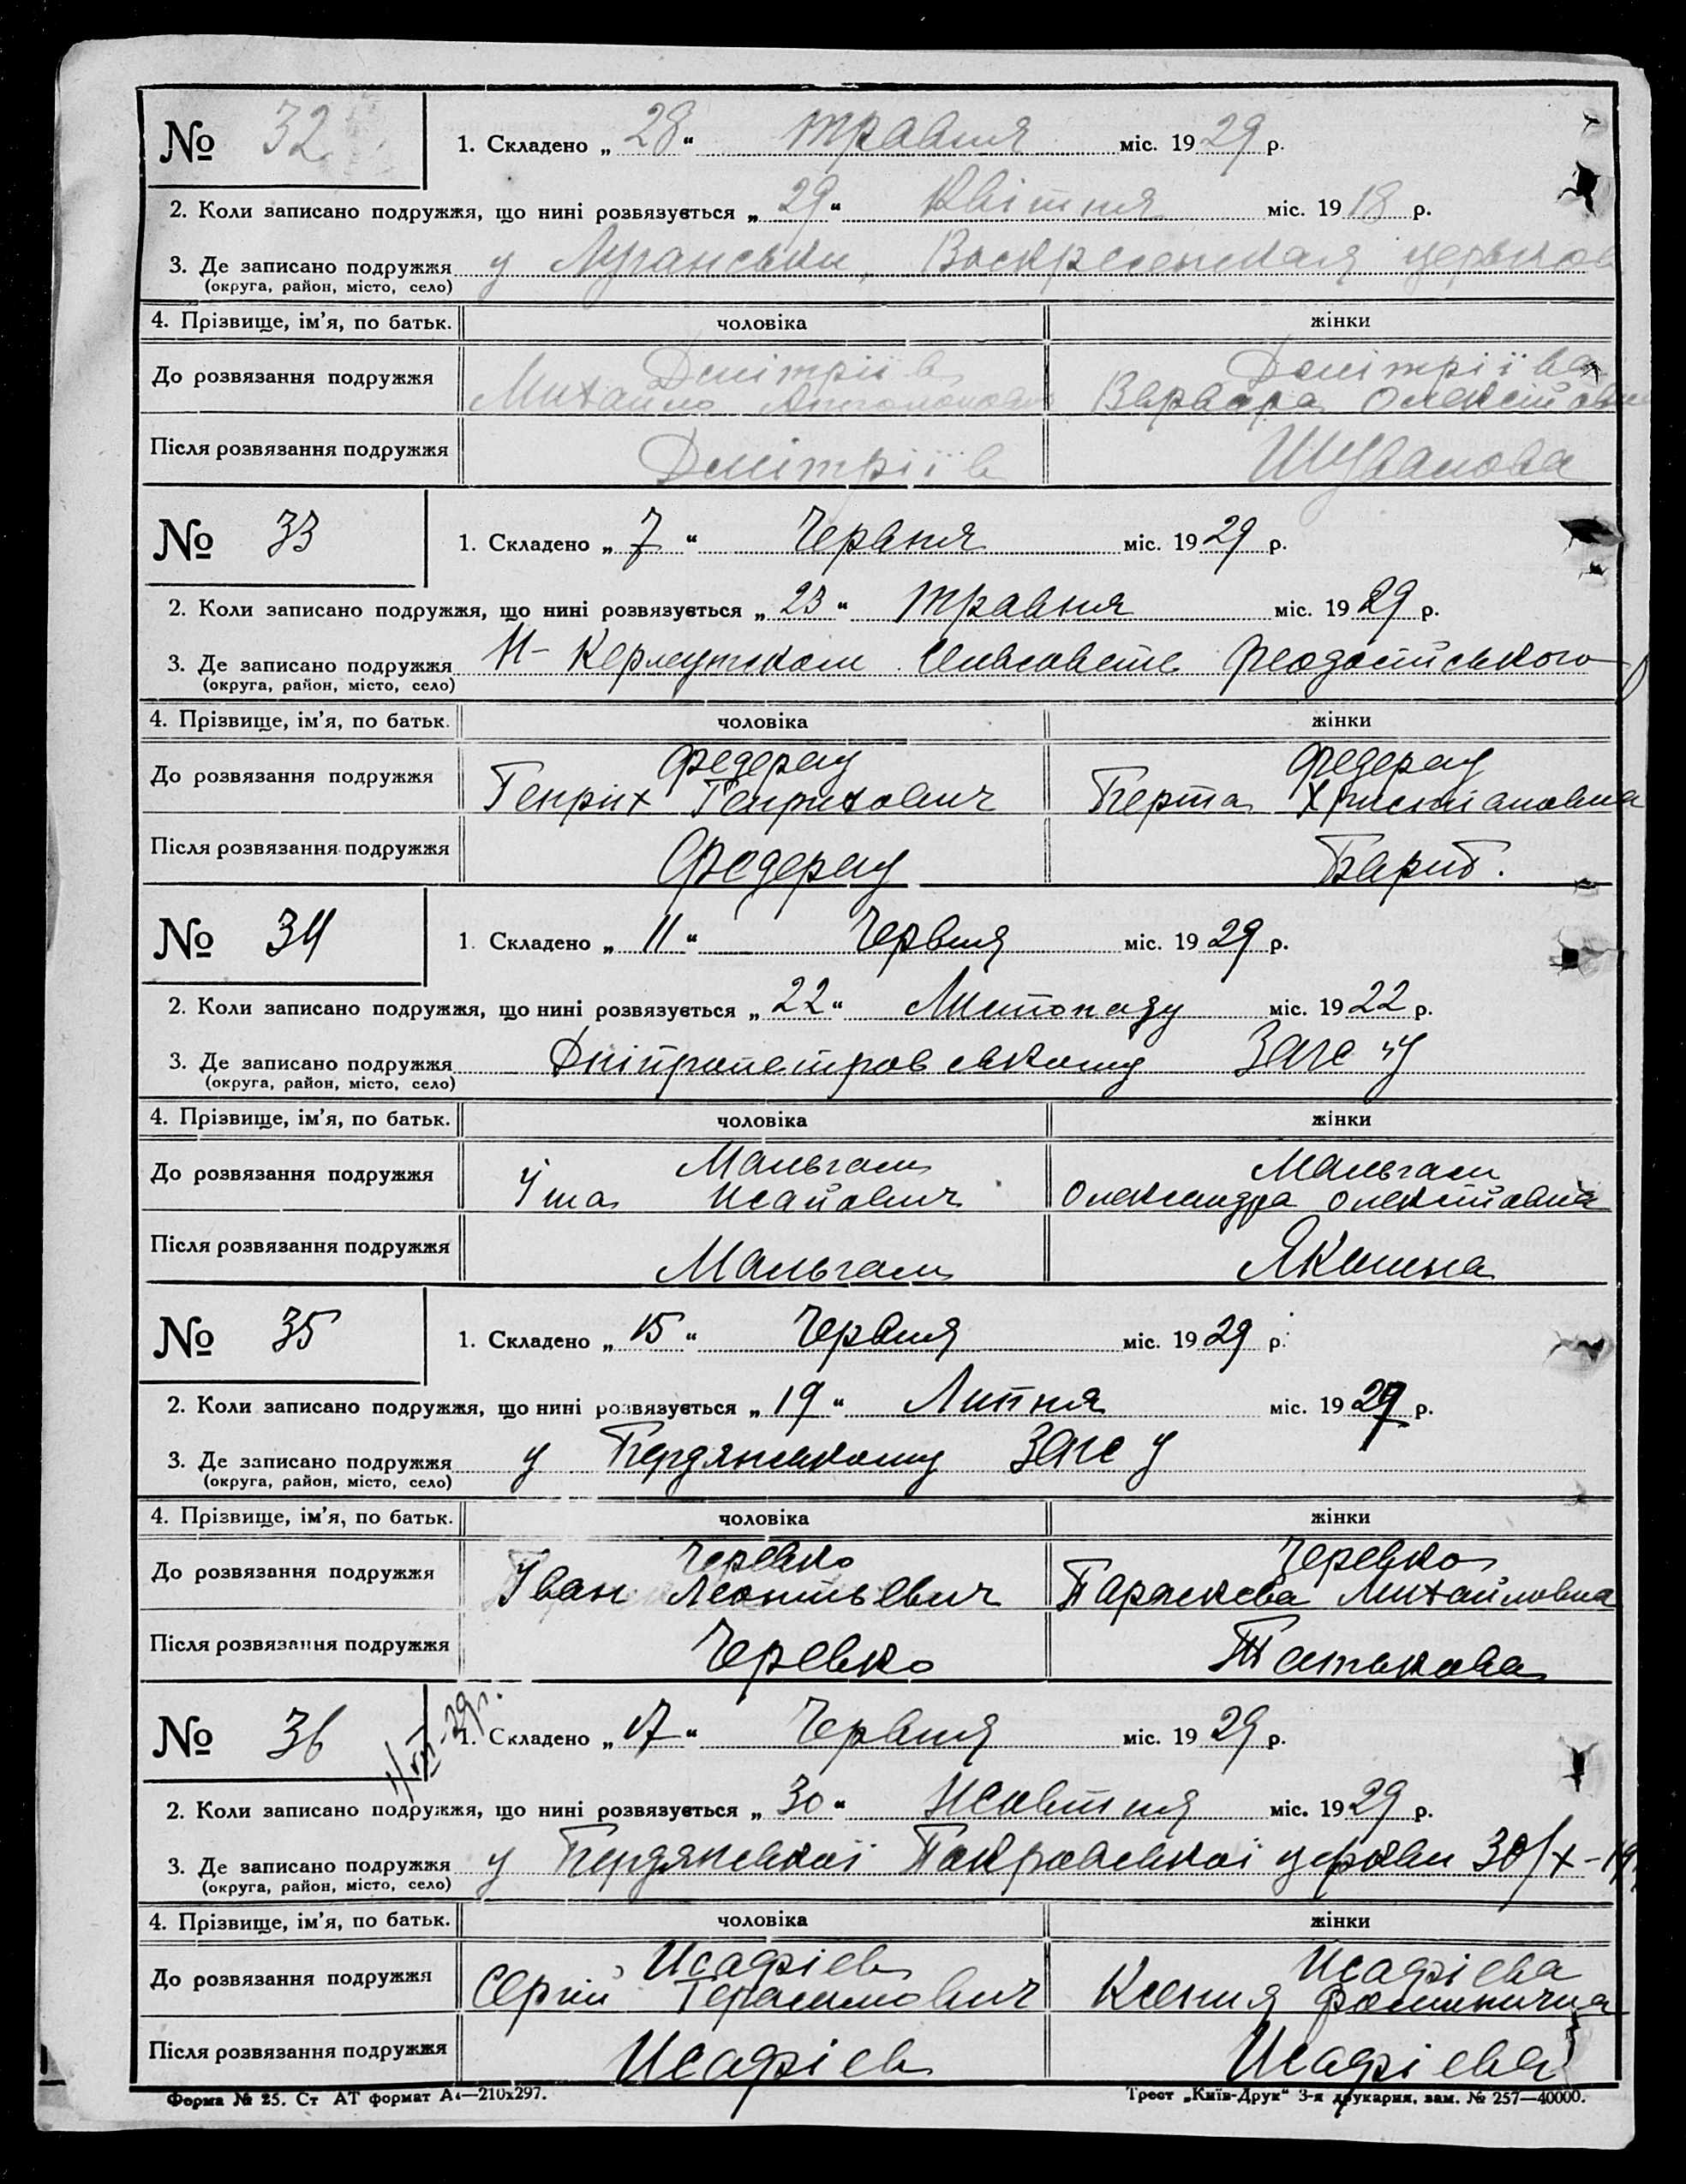 № 32 1. Складено „28“ травня міс. 1929 р.
2. Коли записано подружжя, що нині розвязується „29“ Квітня міс. 1918 р.
3. Де записано подружжя у Луганськи, Воскресенская церьков
(округа, район, місто, село)
4. Прізвище, ім’я, по батьк. чоловіка жінки
Дмітріїв Дмітріїва
До розвязання подружжя Михайло Варвара Олексіївна
Після розвязання подружжя Дмітріїв
№ 33 1. Складено „7“ Червня міс. 1929 р.
2. Коли записано подружжя, що нині розвязується „23“ травня міс. 1929 р.
3. Де записано подружжя Феодосійського
(округа, район, місто, село)
4. Прізвище, ім’я, по батьк. чоловіка жінки
Федерау Федерау
До розвязання подружжя Генрих Генрихович Берта Христіановна
Після розвязання подружжя Федерау
№ 34 1. Складено „11“ Червня міс. 1929 р.
2. Коли записано подружжя, що нині розвязується „22“ Листопаду міс. 1922 р.
3. Де записано подружжя Дніпропетровському Загс'у
(округа, район, місто, село)
4. Прізвище, ім’я, по батьк. чоловіка жінки
Мальгам Мальгам
До розвязання подружжя Исайович Олександра Олексіївна
Після розвязання подружжя Мальгам Якимна
№ 35 1. Складено „15“ Червня міс. 1929 р.
2. Коли записано подружжя, що нині розвязується „19“ Липня міс. 1927 р.
3. Де записано подружжя у Бердянському Загсу
(округа, район, місто, село)
4. Прізвище, ім’я, по батьк. чоловіка жінки
Черевко Черевко
До розвязання подружжя Іван Леонтьевич Параскева Михайловна
Після розвязання подружжя Черевко Татькова
№ 36 1. Складено „17“ Червня міс. 1929 р.
2. Коли записано подружжя, що нині розвязується „30“ Жовтня міс. 1929 р.
3. Де записано подружжя у Бердянської Покровської церкви 30/X-19
(округа, район, місто, село)
4. Прізвище, ім’я, по батьк. чоловіка жінки
Исафіев Исафіева
До розвязання подружжя Сергій Герасимович Ксения Фоминична
Після розвязання подружжя Исафіев Исафіева
Форма № 25. Ст АТ формат А4—210х297. Трест „Київ-Друк“ 3-я друкарня, зам. № 257—40000.